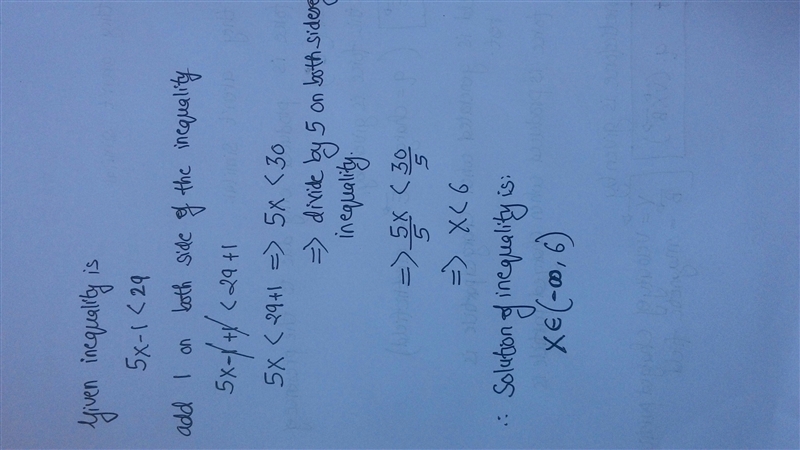 Given inequality is
5x-1 < 29
add 1 on both side of the inequality
5x-1+1 < 29+1
5x < 29+1 => 5x < 30
=> divide by 5 on both sides
inequality.
=> 5x/5 < 30/5
=> x < 6
∴ Solution of inequality is:
x ∈ (-∞, 6)